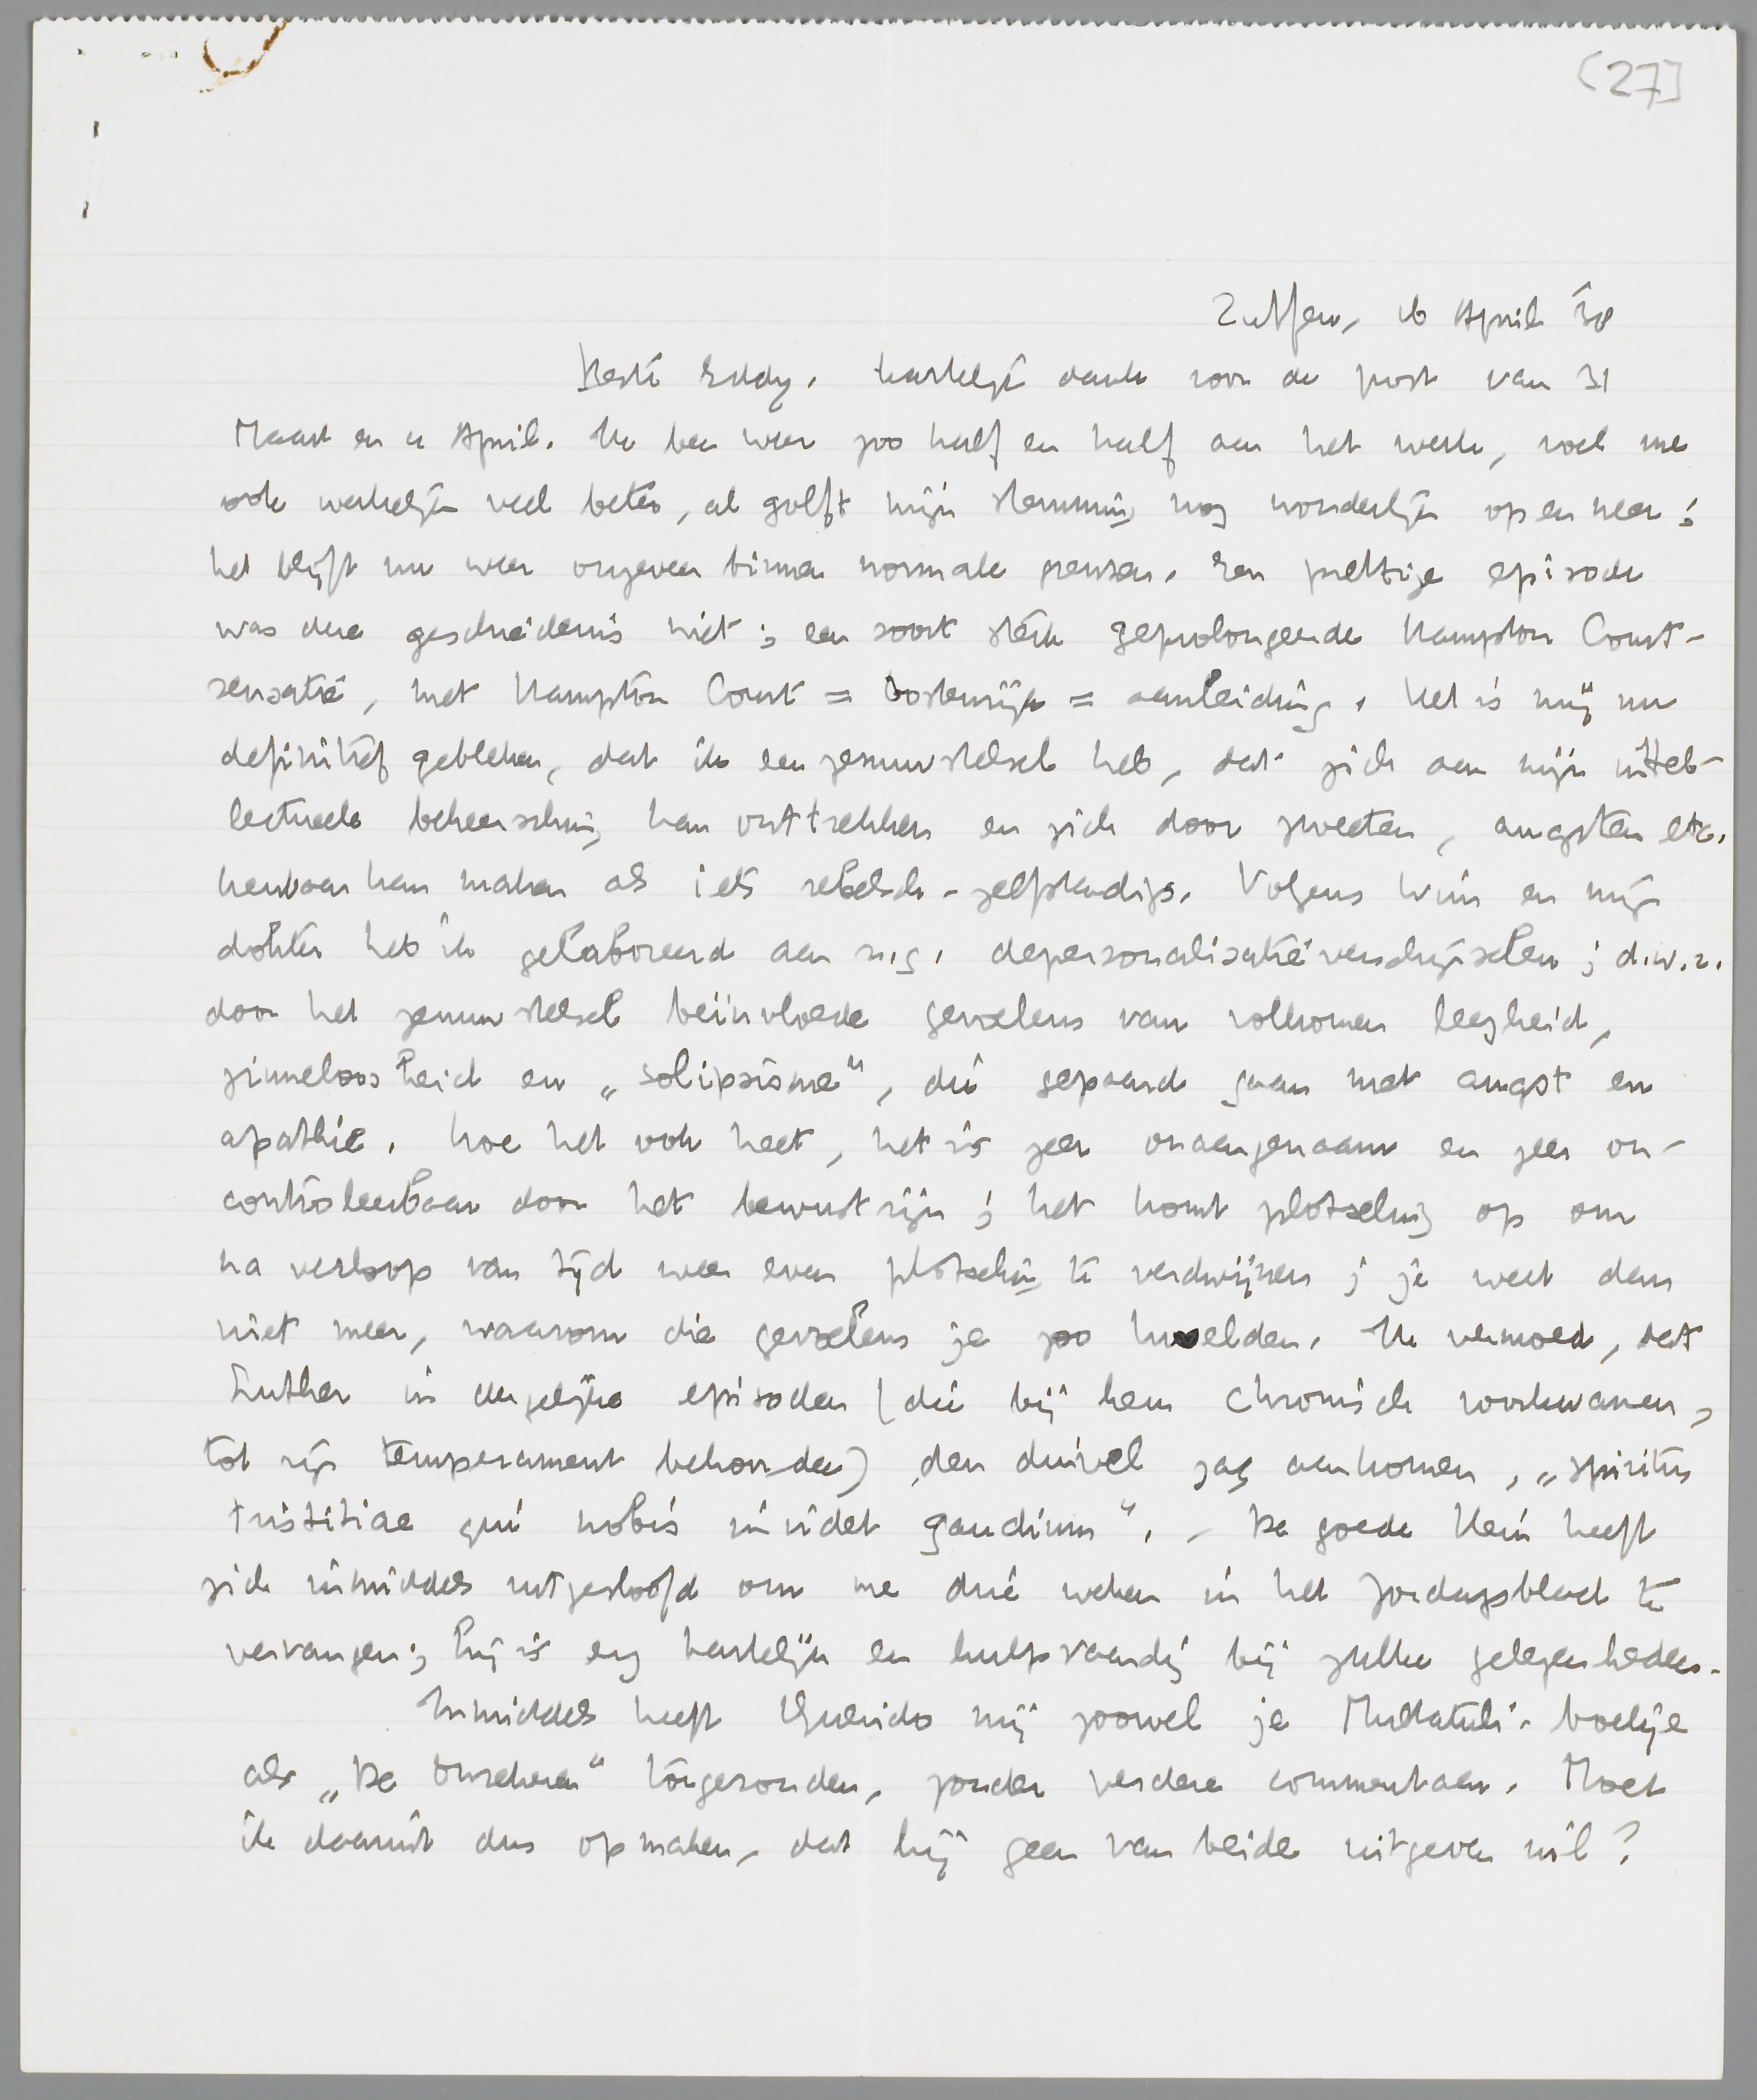 (27]
Zutfen, 16 April '38
Beste Eddy. Hartelijk dank voor de post van 31
Maart en 4 April. Ik ben weer zoo half en half aan het werk, voel me
ook werkelijk veel beter, al golft mijn stemming nog wonderlijk op en neer;
het blijft nu weer ongeveer binnen normale grenzen. Een prettige episode
was deze geschiedenis niet; een soort sterk geprolongeerde Hampton Court-
sensatie, met Hampton Court = Oostenrijk = aanleiding. Het is mij nu
definitief gebleken, dat ik een zenuwstelsel heb, dat zich aan mijn intel-
lectueele beheersching kan onttrekken en zich door zweeten, angsten etc.
kenbaar kan maken als iets rebelsch-zelfstandigs. Volgens Wim en mijn
dokter heb ik gelaboreerd aan z.g. depersonalisatieverschijnselen; d.w.z.
door het zenuwstelsel beïnvloede gevoelens van volkomen leegheid,
zinneloosheid en „solipsisme”, die gepaard gaan met angst en
apathie. Hoe het ook heet, het is zeer onaangenaam en zeer on-
controleerbaar door het bewustzijn; het komt plotseling op om
na verloop van tijd weer even plotseling te verdwijnen; je weet dan
niet meer, waarom die gevoelens je zoo kwelden. Ik vermoed, dat
Luther in dergelijke episoden (die bij hem chronisch voorkwamen,
tot zijn temperament behoorden) den duivel zag aankomen, „spiritus
tristitiae qui nobis invidet gaudium”. - De goede Hein heeft
zich inmiddels uitgesloofd om me drie weken in het Zondagsblad te
vervangen; hij is erg hartelijk en hulpvaardig bij zulke gelegenheden.
Inmiddels heeft Querido mij zoowel je Multatuli-boekje
als „De Onzekeren” toegezonden, zonder verdere commentaar. Moet
ik daaruit dus opmaken, dat hij geen van beide uitgeven wil?